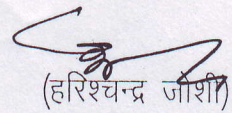 (हरिश्चन्द्र जोशी)